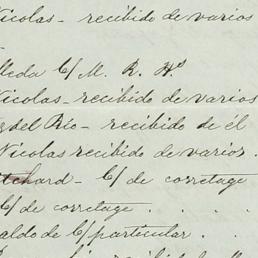 Nicolas - recibido de varios
lleda C/ M. R. Hs
Nicolas - recibido de varios
del Río - recibido de él
Nicolas recibido de varios.
tchard - C/ de corretage
C/ de corretage . . .
aldo de C/ particular .